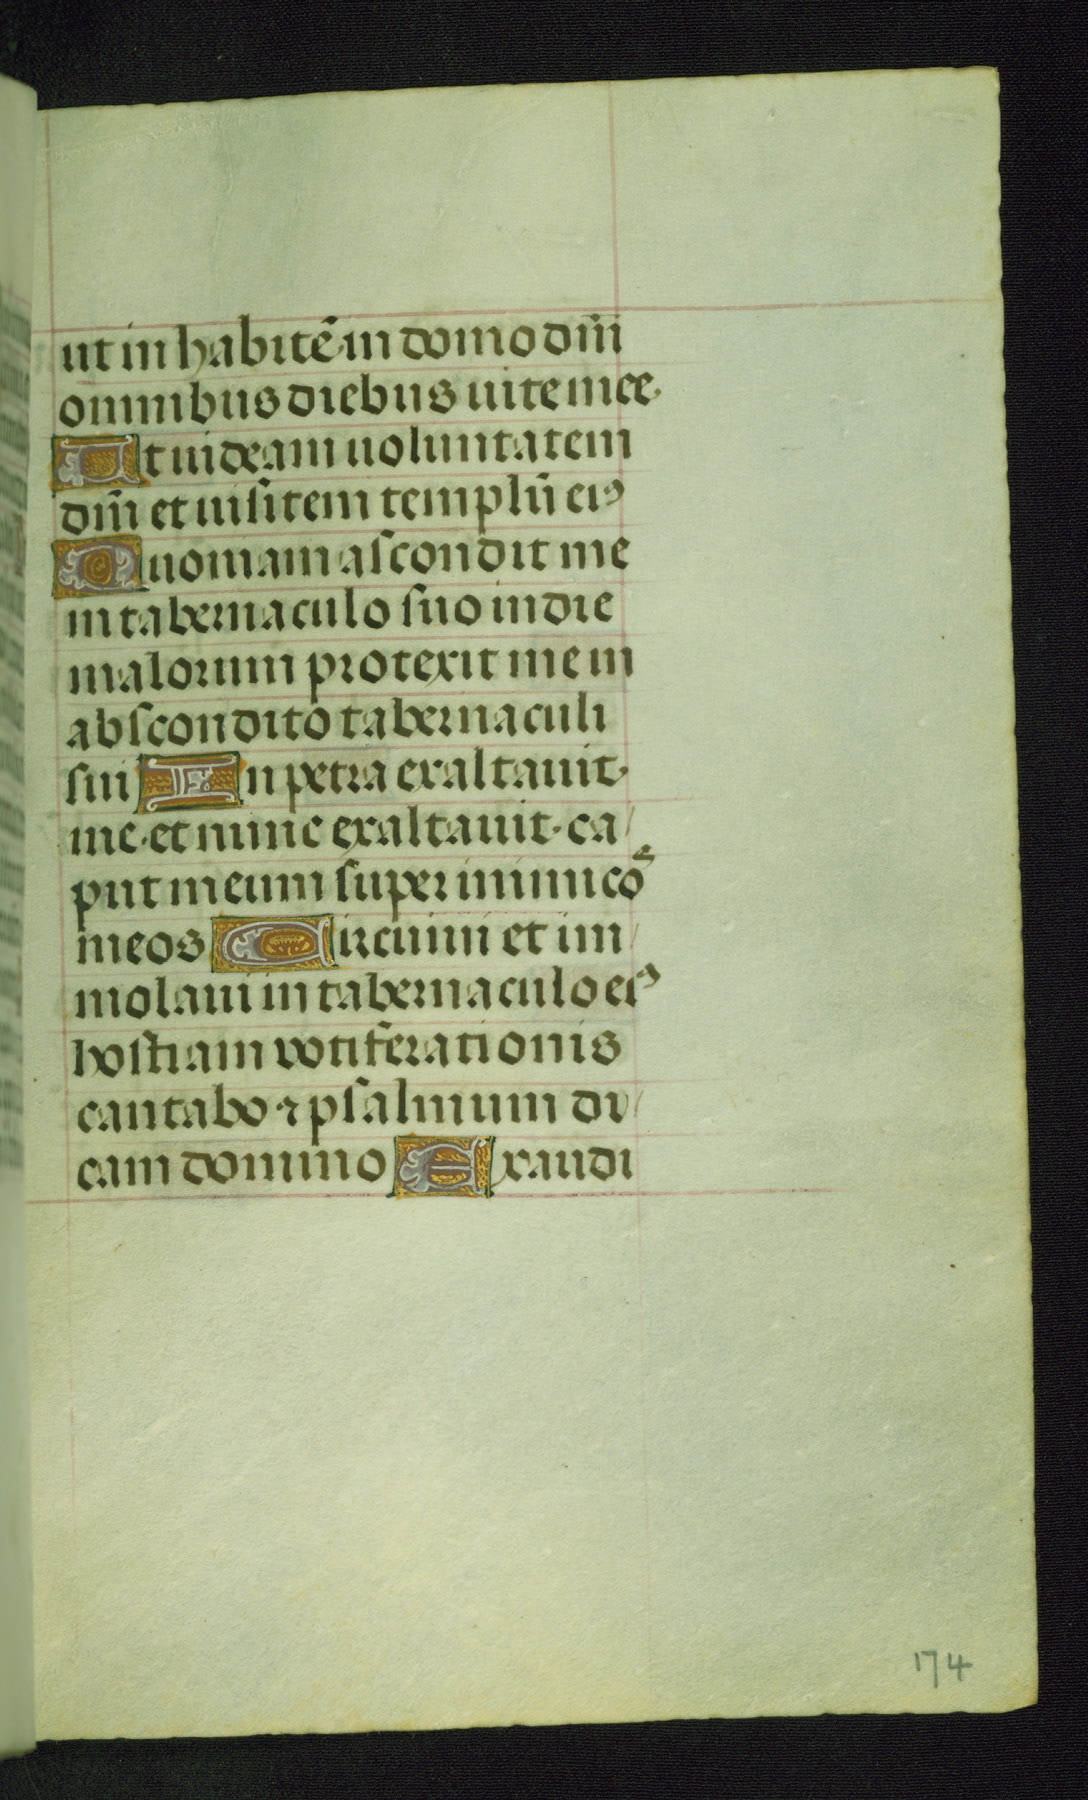 ut inhabitē in domo dn̄i
omnibus diebus uite mee·
Ut uideam uoluntatem
dn̄i et uisitem templū eiꝰ
Quoniam ascondit me
in tabernaculo suo in die
malorum protexit me in
abscondito tabernaculi
sui In petra exaltauit·
me·et nunc exaltauit·ca/
put meum super inimicōs
meos Circuiui et im/
molaui in tabernaculo eiꝰ
hostiam votiferationis
cantabo ⁊ psalmum di/
cam domino Exaudi
174